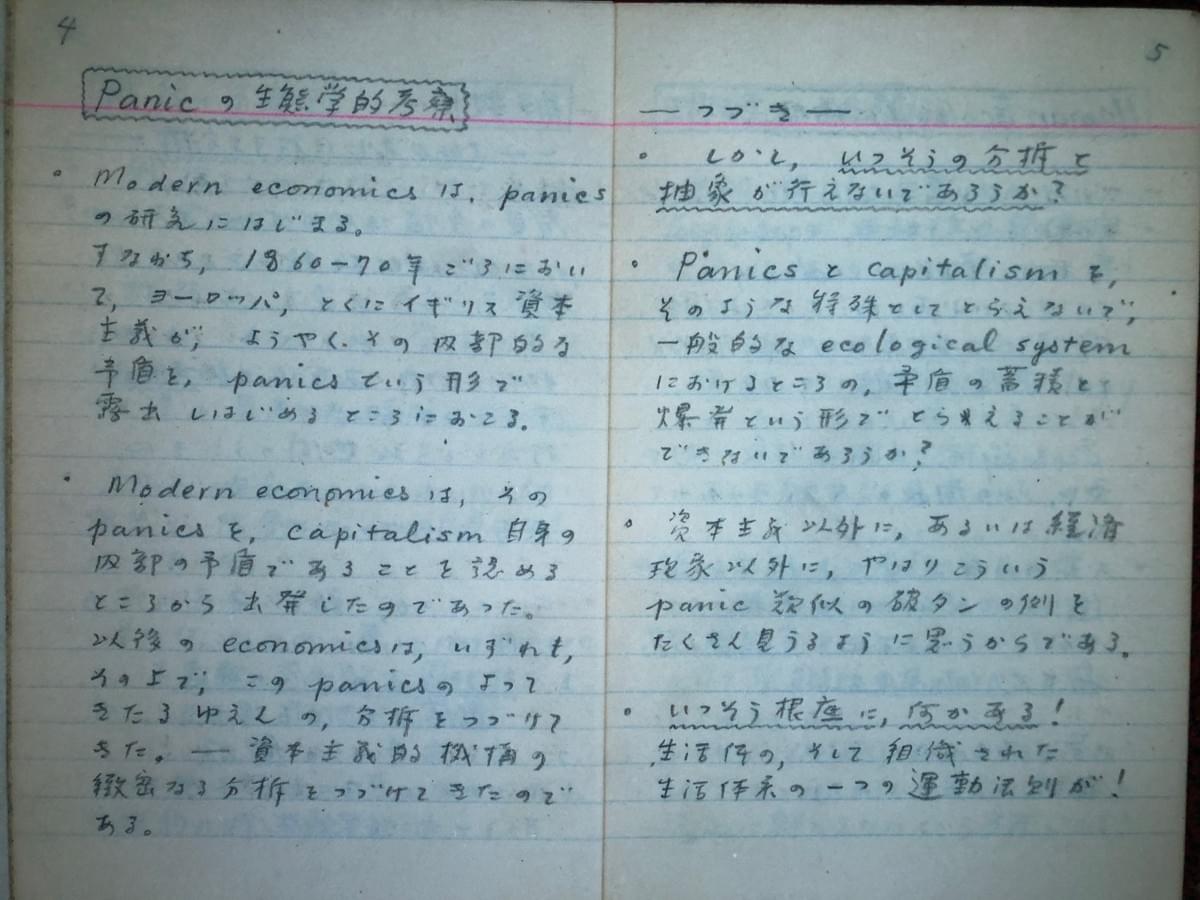 4
Panic の 生態学的考察
• Modern economics は、panics
の研究にはじまる。
すなわち, 1860－70年ごろにおい
て, ヨーロッパ, とくにイギリス資本
主義が, ようやく, その内部的な
矛盾を, panics という形で
露出しはじめるところにおこる。
• Modern economics は, その
panics を, capitalism 自身の
内部の矛盾であることを認める
ところから出発したのであった。
以後の economics は, いずれも,
その上で, この panics のよって
きたるゆえんの, 分析をつづけて
きた。 ── 資本主義的機構の
緻密なる分析をつづけてきたので
ある。
5
── つづき ──
• しかし, いっそうの分析と
抽象が行えないであろうか?
• Panics と capitalism を,
そのような特殊としてとらえないで,
一般的な ecological system
におけるところの, 矛盾の蓄積と
爆発という形でとらえることが
できないであろうか?
• 資本主義以外に, あるいは経済
現象以外に, やはりこういう
panic 類似の破タンの例を
たくさん見うるように思うからである。
• いっそう根底に, 何かある!
生活体の, そして組織された
生活体系の一つの運動法則が!